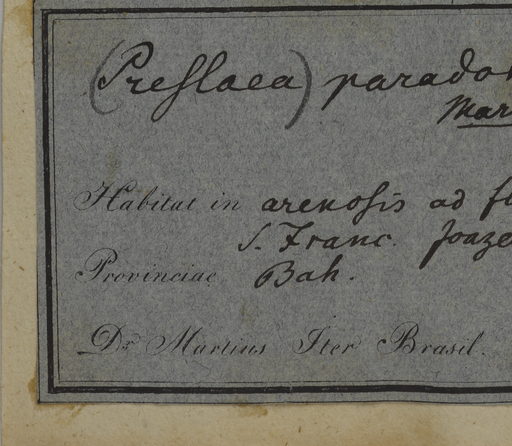 (Preslaea) parado
Mar
Habitat in arenosis ad fl
S. Franc. Joaze
Provinciae Bah.
Dr Martius Iter Brasil.